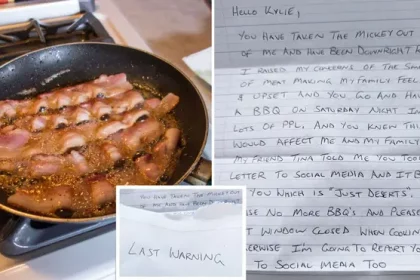 HELLO KYLIE,
YOU HAVE TAKEN THE MICKEY OUT
OF ME AND HAVE BEEN DOWNRIGHT
I RAISED MY CONCERNS OF THE
OF MEAT MAKING MY FAMILY FEEL
& UPSET AND YOU GO AND HAVE
A BBQ ON SATURDAY NIGHT IN
LOTS OF PPL, AND YOU KNEW
WOULD AFFECT ME AND MY FAMILY
MY FRIEND TINA TOLD ME YOU TOOK
LETTER TO SOCIAL MEDIA AND IT
YOU WHICH IS "JUST DESERTS',
NO MORE BBQ'S AND
WINDOW CLOSED WHEN COOKING
I'M GOING TO REPORT YOU
TO SOCIAL MEDIA TOO
YOU HAVE TAKEN THE MICKEY OUT
LAST WARNING